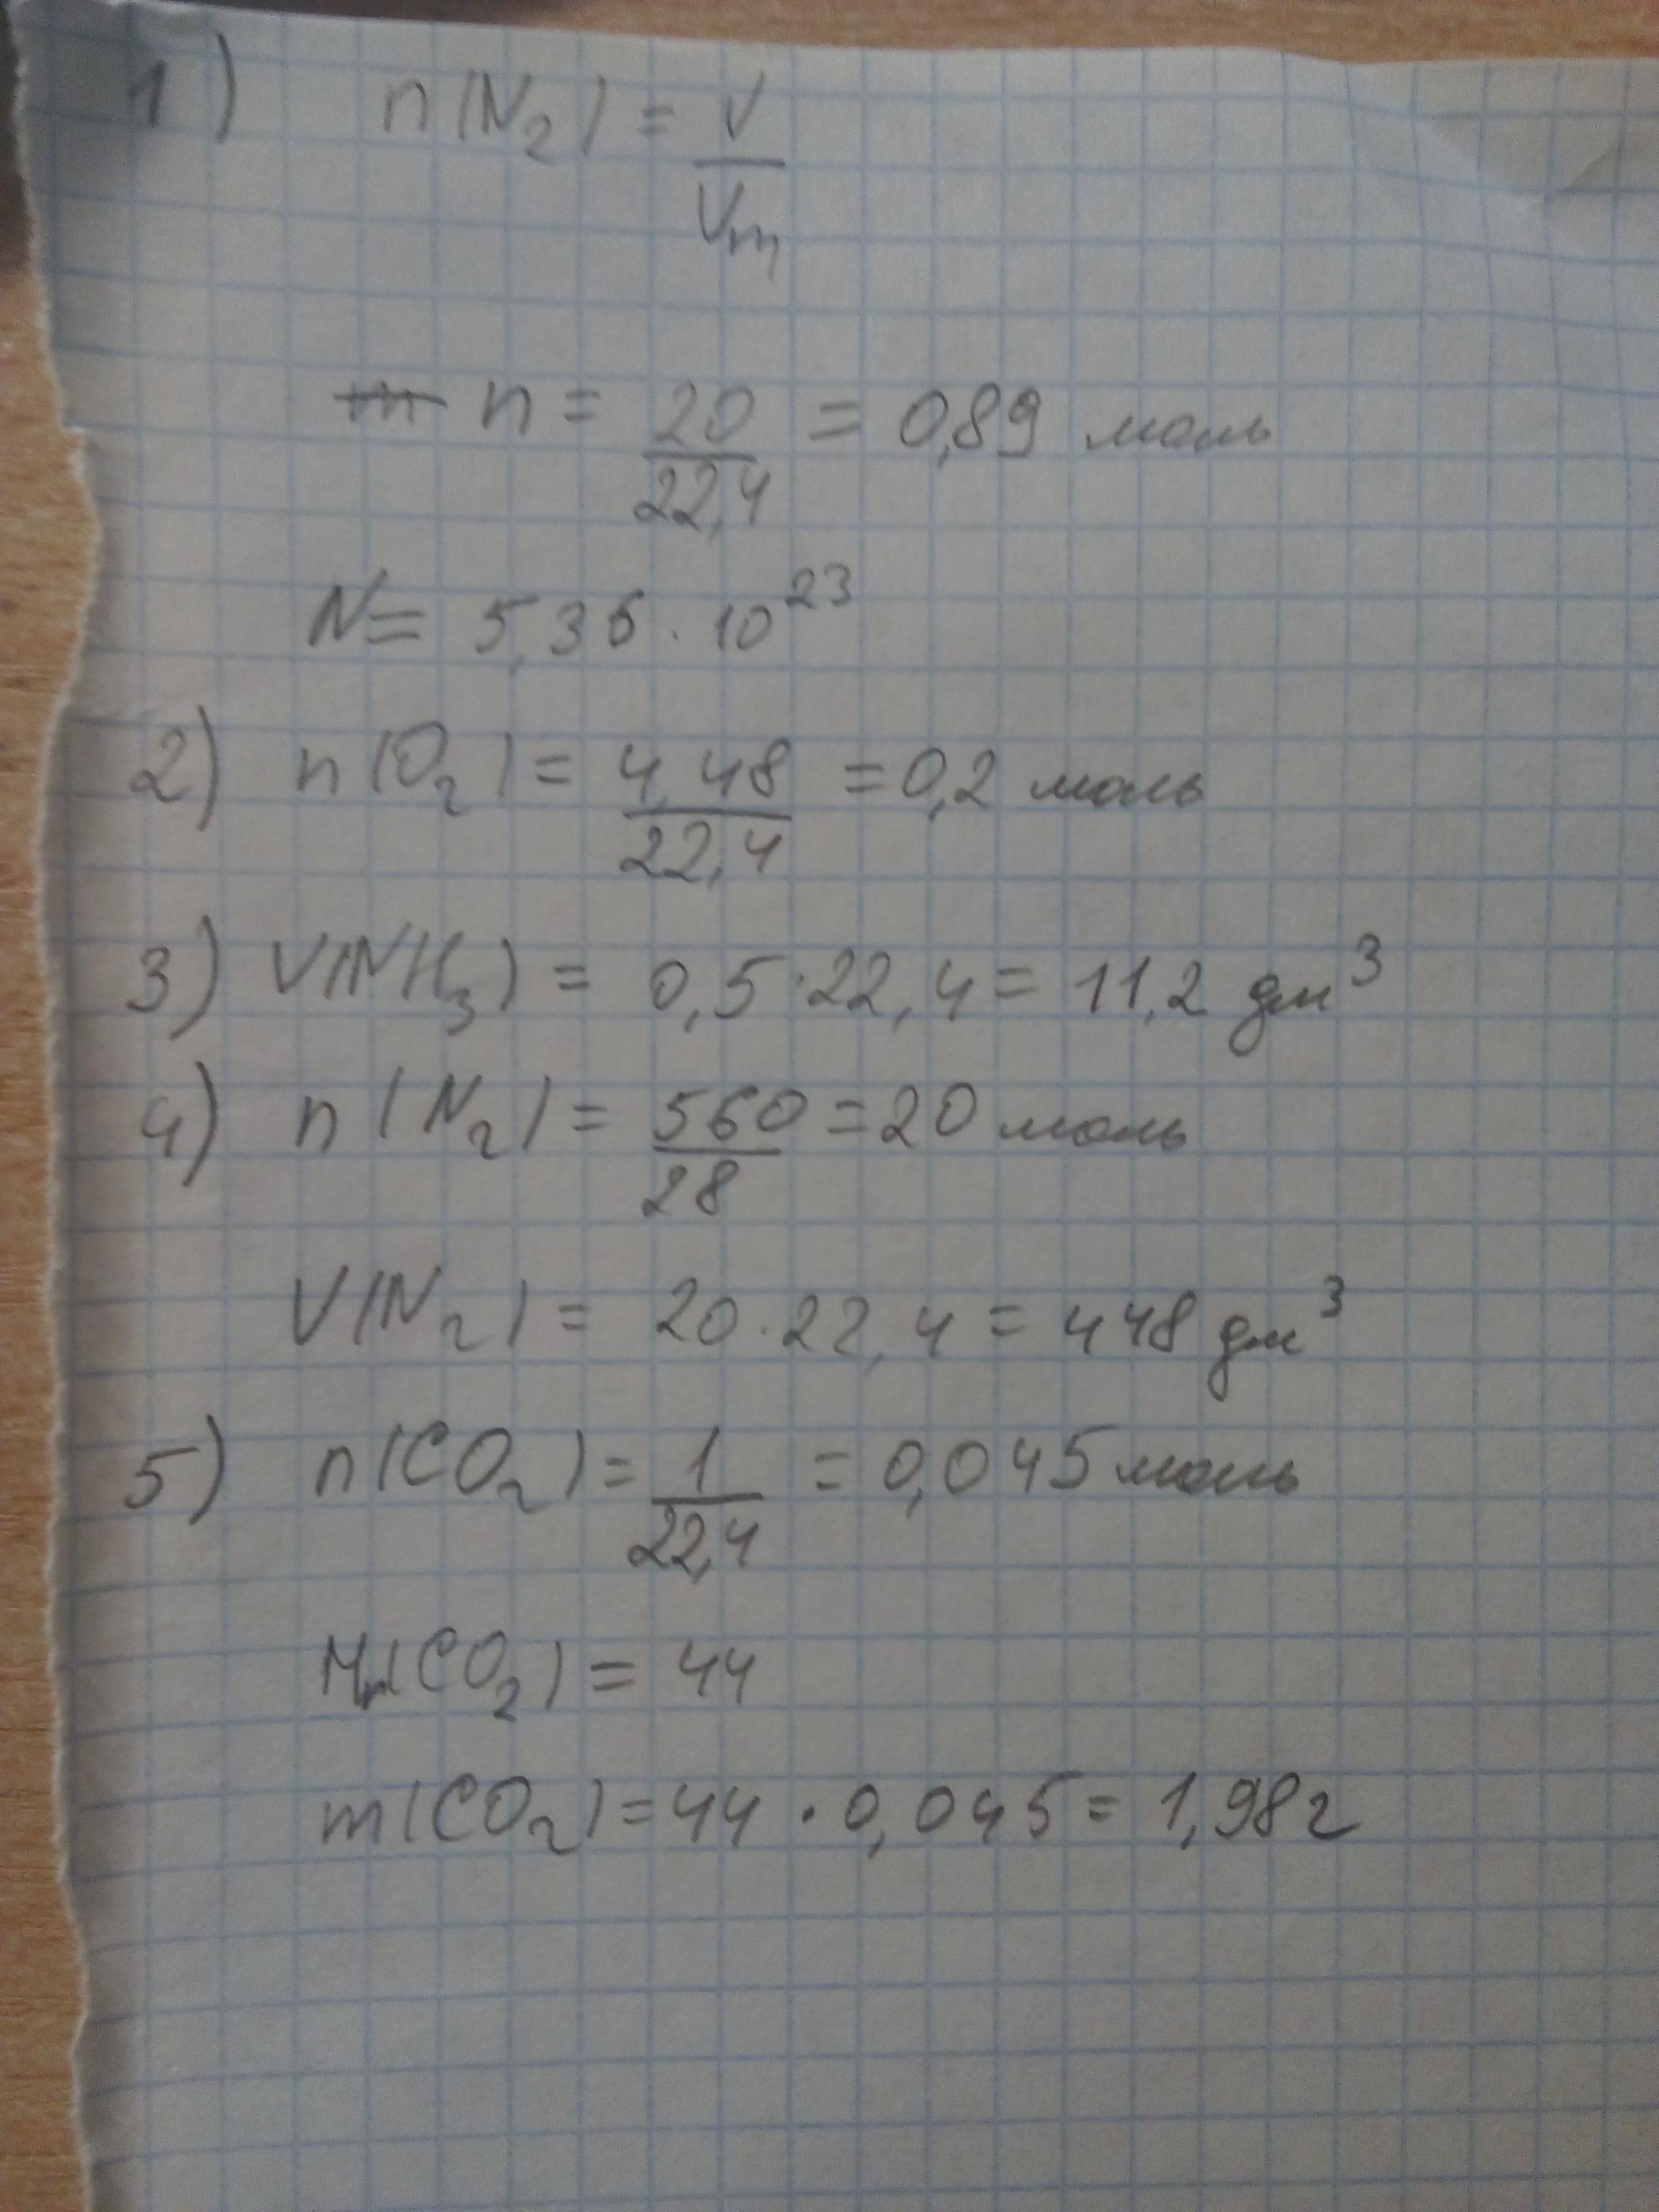 1) n(N₂) = V/Vm
m n = 20/22,4 = 0,89 моль
N = 5,36 · 10²³
2) n(O₂) = 4,48/22,4 = 0,2 моль
3) V(NH₃) = 0,5 · 22,4 = 11,2 дм³
4) n(N₂) = 560/28 = 20 моль
V(N₂) = 20 · 22,4 = 448 дм³
5) n(CO₂) = 1/22,4 = 0,045 моль
Mr(CO₂) = 44
m(CO₂) = 44 · 0,045 = 1,98 г